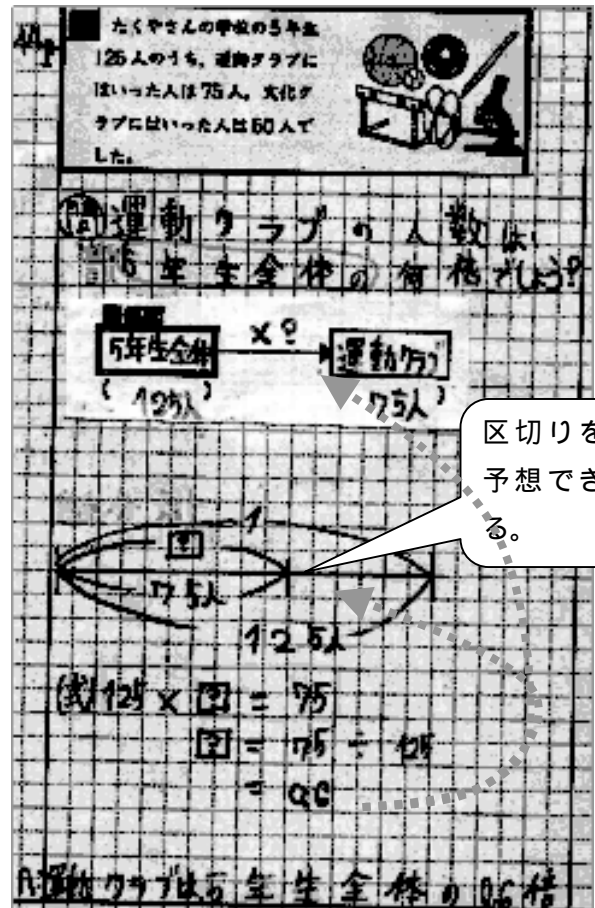 44P
たくやさんの学校の5年生
125人のうち、運動クラブに
はいった人は75人、文化ク
ラブにはいった人は50人で
した。
問 運動クラブの人数は、
5年生全体の何倍でしょう?
×?
5年生全体 運動クラブ
(125人) (75人)
区切りを
予想でき
る。
1
?
75人
125人
(式) 125 × ? = 75
? = 75 ÷ 125
= 0.6
A. 運動クラブは5年生全体の0.6倍